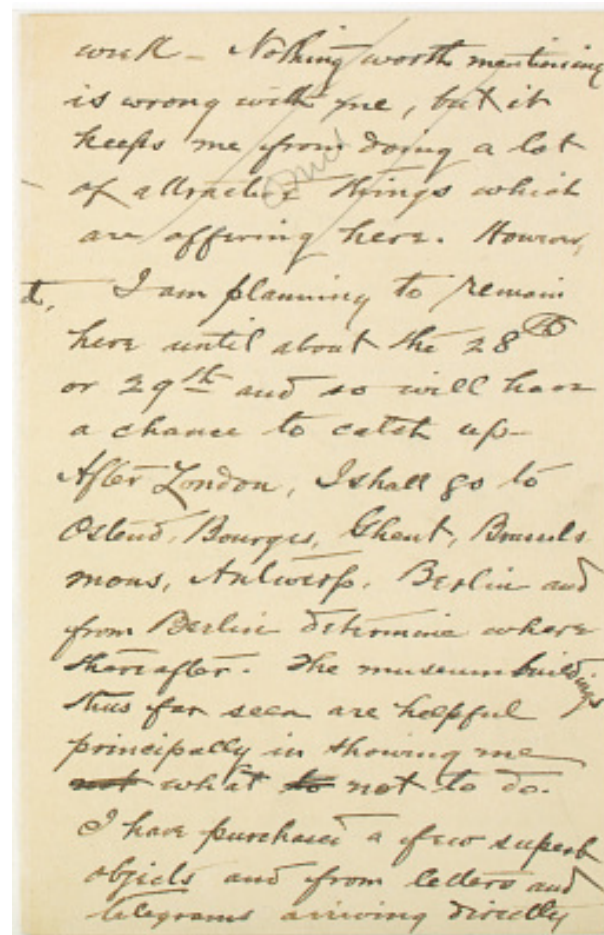 week – Nothing worth mentioning
is wrong with me, but it
keeps me from doing a lot
of attractive things which
are offering here. However,
t, I am planning to remain
here until about the 28th
or 29th and so will have
a chance to catch up –
After London, I shall go to
Ostend, Bourges, Ghent, Brussels
mons, Antwerp, Berlin and
from Berlin determine where
thereafter. The museum buildings
thus far seen are helpful
principally in showing me
not what to not to do.
I have purchased a few superb
objects and from letters and
telegrams arriving directly